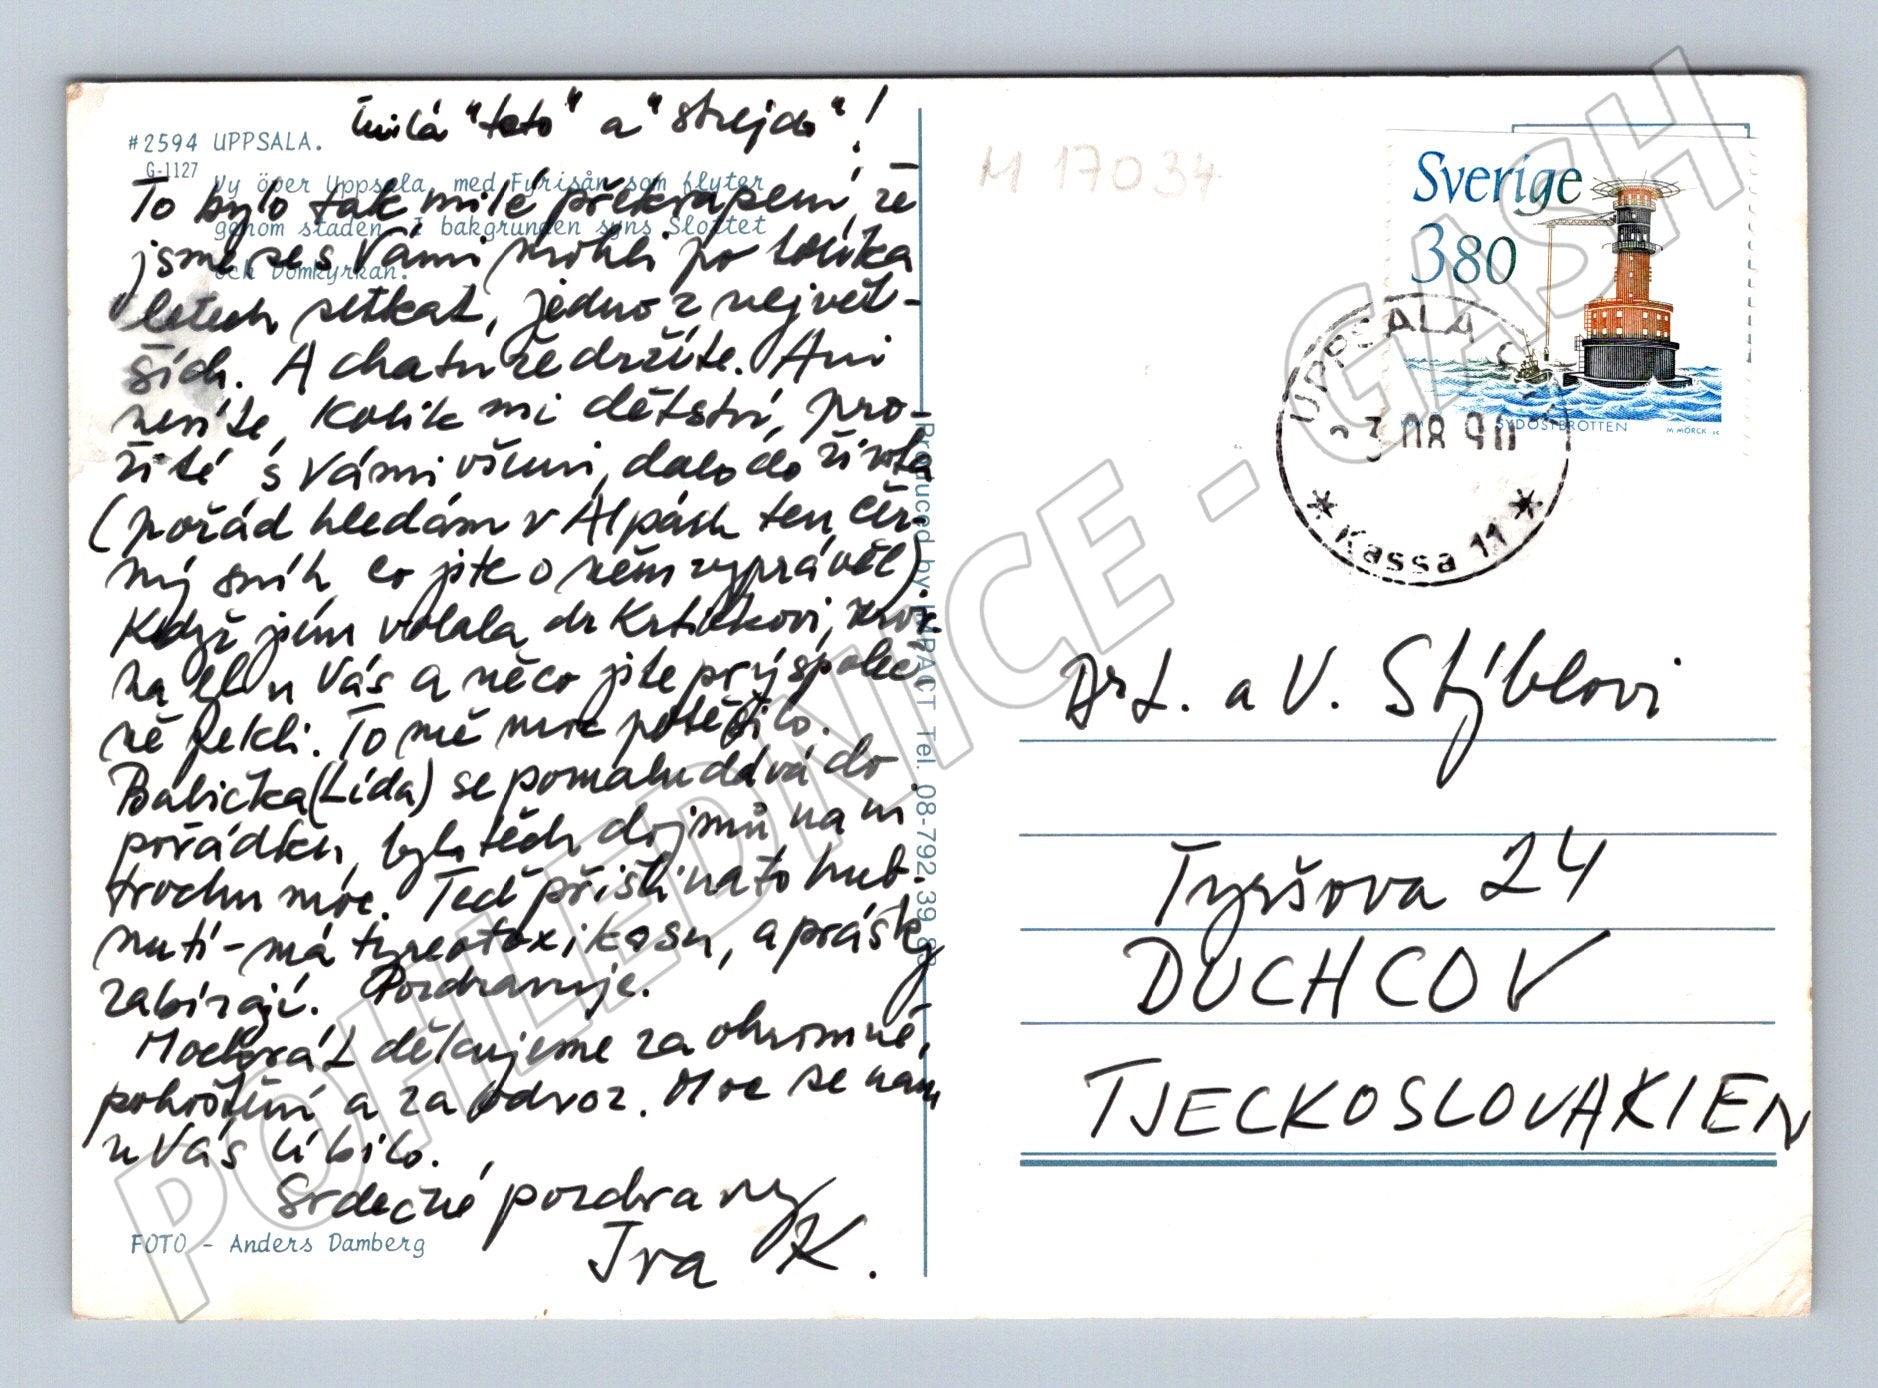 Milá "teto" a "strejdo"!
#2594 UPPSALA.
G-1127
Vy över Uppsala, med Fyrisån som flyter
genom staden. I bakgrunden syns Slottet
och Domkyrkan.
To bylo tak milé překvapení, že
jsme se s Vámi mohli po tolika
letech setkat, jedno z největ-
ších. A chatu že držíte. Ani
nevíte, kolik mi dětství, pro-
žité s Vámi všemi, dalo do života
(pořád hledám v Alpách ten čer-
ný sníh, co jste o něm vyprávěl).
Když jsem volala dr Krtičkovi,
byl u Vás a něco jste prý společ
ně řekli. To mě moc potěšilo.
Babička (Lída) se pomalu dává do
pořádku, bylo těch dojmů na ni
trochu moc. Teď přišli na to hub-
nutí - má tyreotoxikosu, a prášky
zabírají. Pozdravuje.
Mockrát děkujeme za ohromné
pohoštění a za odvoz. Moc se nám
u Vás líbilo.
Srdečné pozdravy
Iva K.
FOTO - Anders Damberg
Produced by IMPACT Tel. 08-792 39 8
M 17034
Sverige
380
SYDOSTBROTTEN
M. MÖRCK SC
UPPSALA
23 08 90
* Kassa 11 *
Dr L. a V. Stýblovi
Tyršova 24
DUCHCOV
TJECKOSLOVAKIEN
POHLEDNICE - GASH